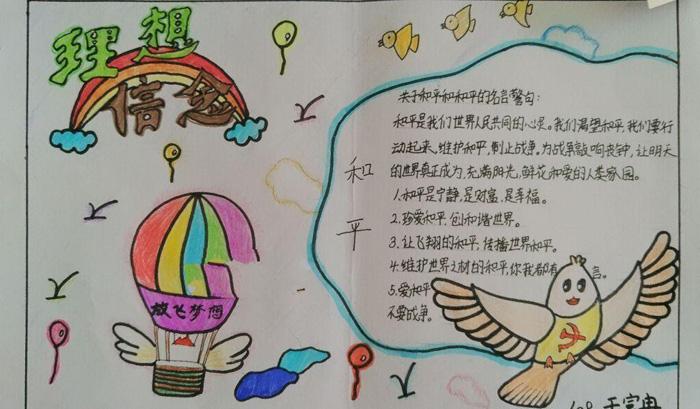 理想
信念
放飞梦想
和平
关于和平和和平的名言警句:
和平是我们世界人民共同的心灵。我们渴望和平,我们要行
动起来,维护和平,制止战争。为战争敲响丧钟,让明天
的世界真正成为,充满阳光,鲜花和爱的人类家园。
1.和平是宁静,是财富,是幸福。
2.珍爱和平,创和谐世界。
3.让飞翔的和平,传播世界和平。
4.维护世界之材的和平,你我都有言。
5.爱和平
不要战争。